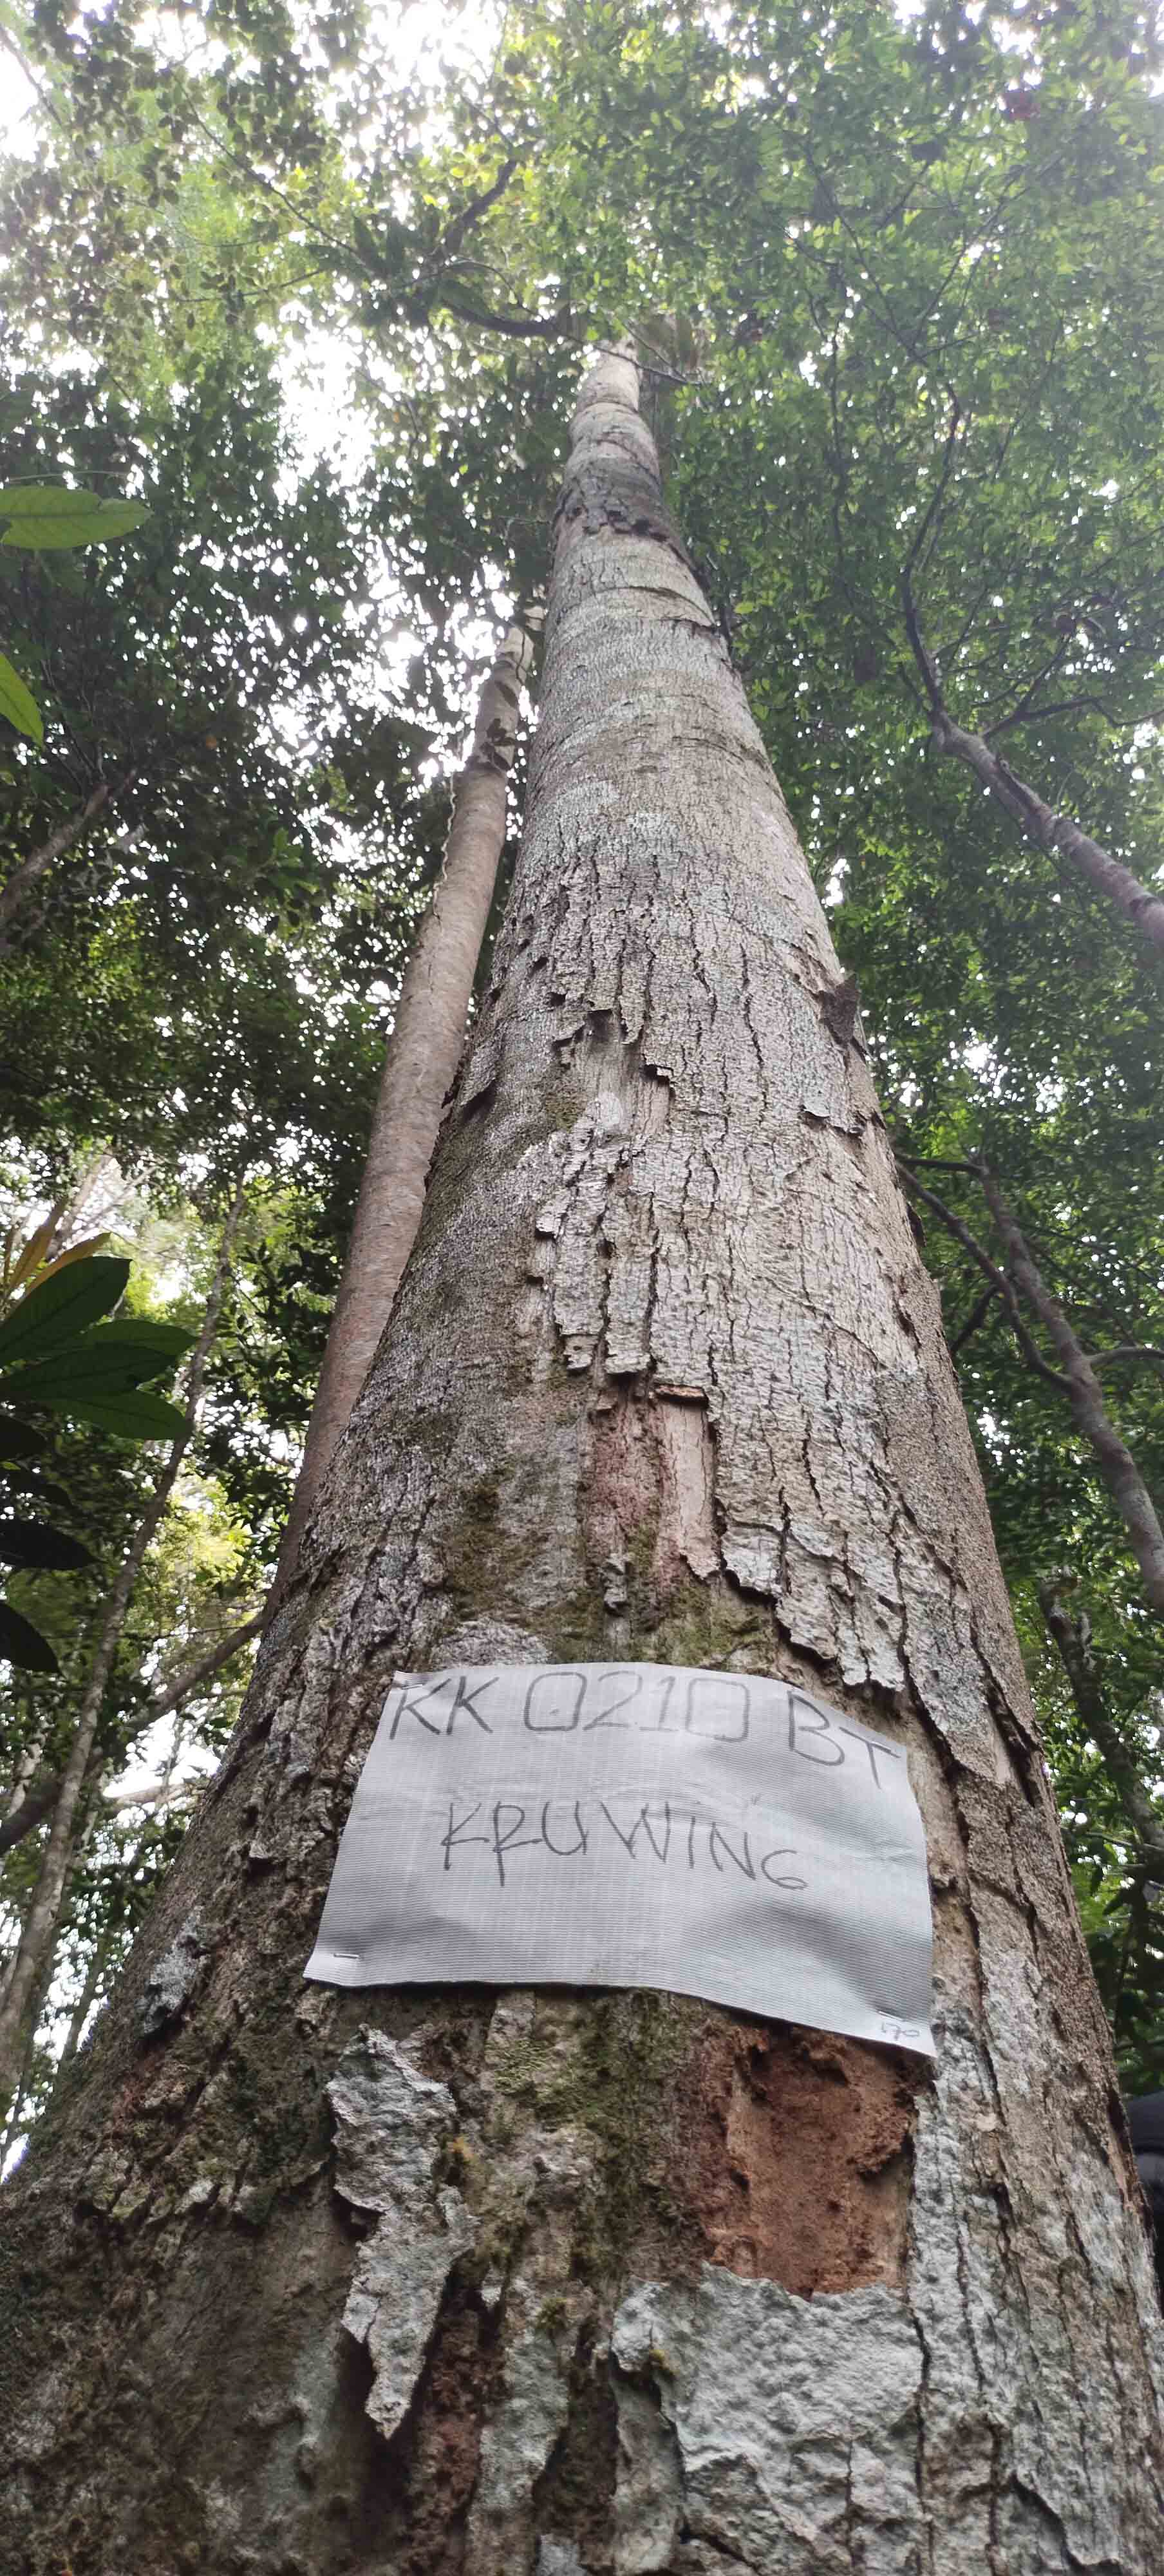 KK 0210 BT
KRUWING
170